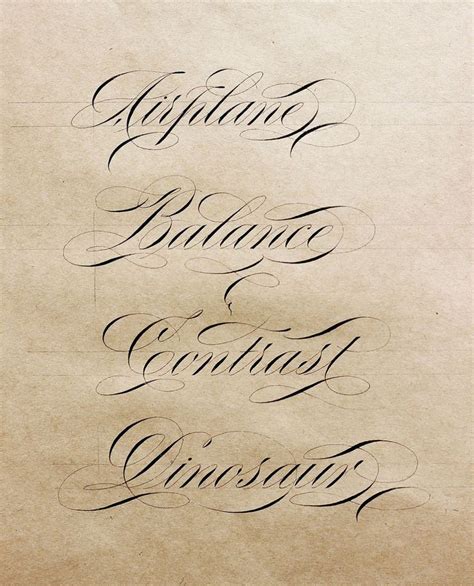 Airplane
Balance
Contrast
Dinosaur